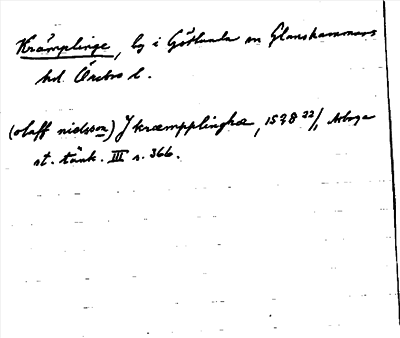 Krämplinge, by i Götlunda sn Glanshammars
hd. Örebro l.
(olaff nielsson) J kræmpplinghæ, 1528 22/1, Arboga
st. tänk. III s. 366.